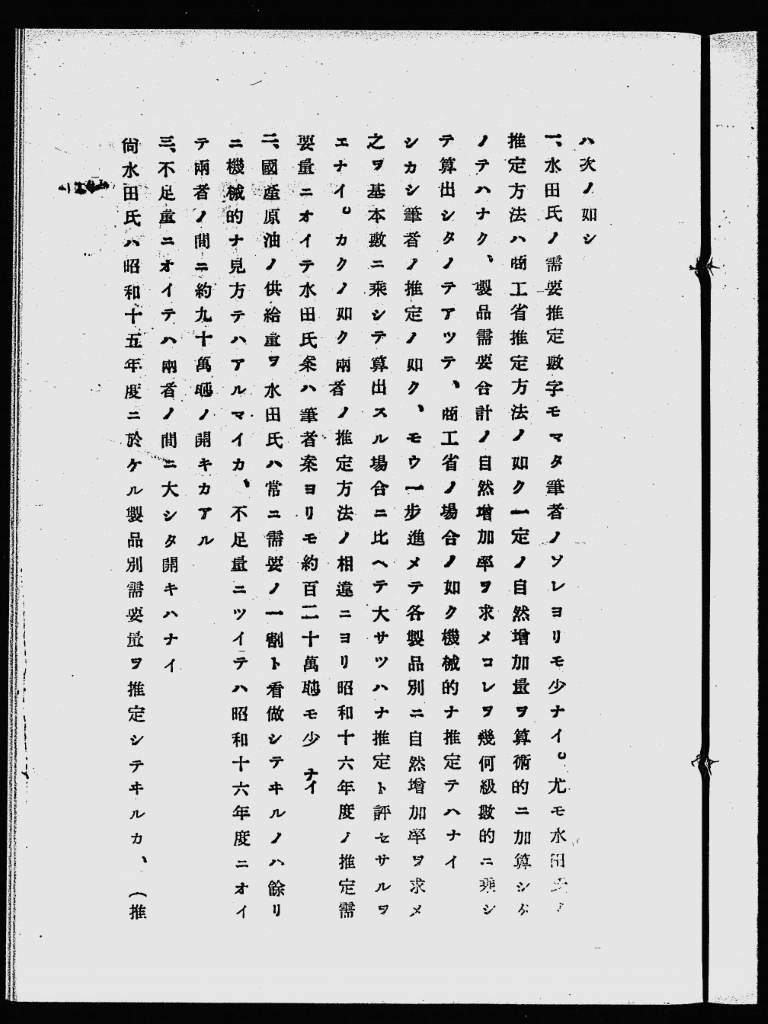 ハ次ノ如シ
一、水田氏ノ需要推定數字モマタ筆者ノソレヨリモ少ナイ。尤モ水田氏ノ
推定方法ハ商工省推定方法ノ如ク一定ノ自然增加量ヲ算術的ニ加算シタ
ノテハナク、製品需要合計ノ自然增加率ヲ求メコレヲ幾何級數的ニ乘シ
テ算出シタノテアツテ、商工省ノ場合ノ如ク機械的ナ推定テハナイ
シカシ筆者ノ推定ノ如ク、モウ一步進メテ各製品別ニ自然增加率ヲ求メ
之ヲ基本數ニ乘シテ算出スル場合ニ比ヘテ大サツハナ推定ト評セサルヲ
エナイ。カクノ如ク兩者ノ推定方法ノ相違ニヨリ昭和十六年度ノ推定需
要量ニオイテ水田氏案ハ筆者案ヨリモ約百二十萬噸モ少ナイ
二、國產原油ノ供給量ヲ水田氏ハ常ニ需要ノ一割ト看做シテヰルノハ餘リ
ニ機械的ナ見方テハアルマイカ、不足量ニツイテハ昭和十六年度ニオイ
テ兩者ノ間ニ約九十萬噸ノ開キカアル
三、不足量ニオイテハ兩者ノ間ニ大シタ開キハナイ
尙水田氏ハ昭和十五年度ニ於ケル製品別需要量ヲ推定シテヰルカ、（推